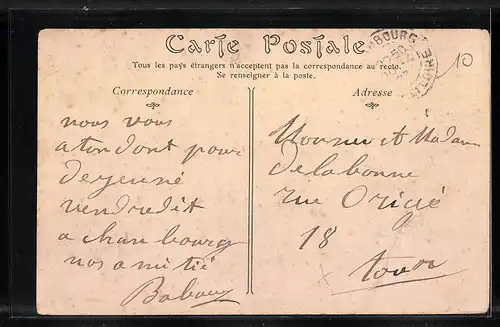 Carte Postale
Tous les pays étrangers n'acceptent pas la correspondance au recto.
Se renseigner à la poste.
Correspondance
Adresse
nous vous
atondont pour
dejeuné
vendredit
a chan bourg
nos amitié
Monsieur et Madame
delabonne
rue Origé
18
tour